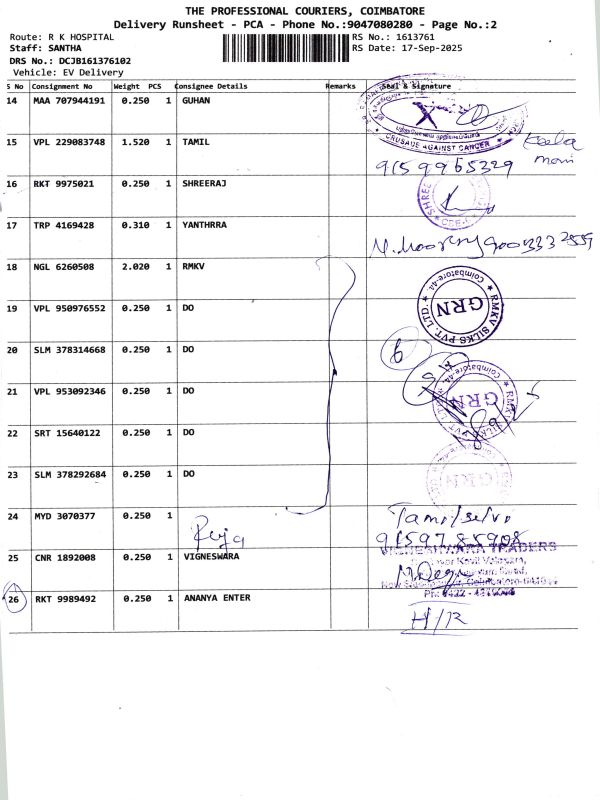 THE PROFESSIONAL COURIERS, COIMBATORE
Delivery Runsheet - PCA - Phone No.:9047080280 - Page No.:2
Route: R K HOSPITAL
RS No.: 1613761
Staff: SANTHA
RS Date: 17-Sep-2025
DRS No.: DCJB161376102
Vehicle: EV Delivery
S No Consignment No Weight PCS Consignee Details Remarks Seal & Signature
14 MAA 707944191 0.250 1 GUHAN
CRUSADE AGAINST CANCER
15 VPL 229083748 1.520 1 TAMIL
9159965329
16 RKT 9975021 0.250 1 SHREERAJ
SHREE
17 TRP 4169428 0.310 1 YANTHRRA
18 NGL 6260508 2.020 1 RMKV
RMKV SILKS PVT. LTD. Coimbatore-44
GRN
19 VPL 950976552 0.250 1 DO
20 SLM 378314668 0.250 1 DO
6
21 VPL 953092346 0.250 1 DO
Coimbatore-44 RMKV
GRN
22 SRT 15640122 0.250 1 DO
23 SLM 378292684 0.250 1 DO
24 MYD 3070377 0.250 1
Tamilselvi
9159785908
25 CNR 1892008 0.250 1 VIGNESWARA
TRADERS
26 RKT 9989492 0.250 1 ANANYA ENTER
H/R